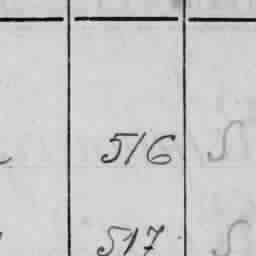 516 S
517 S